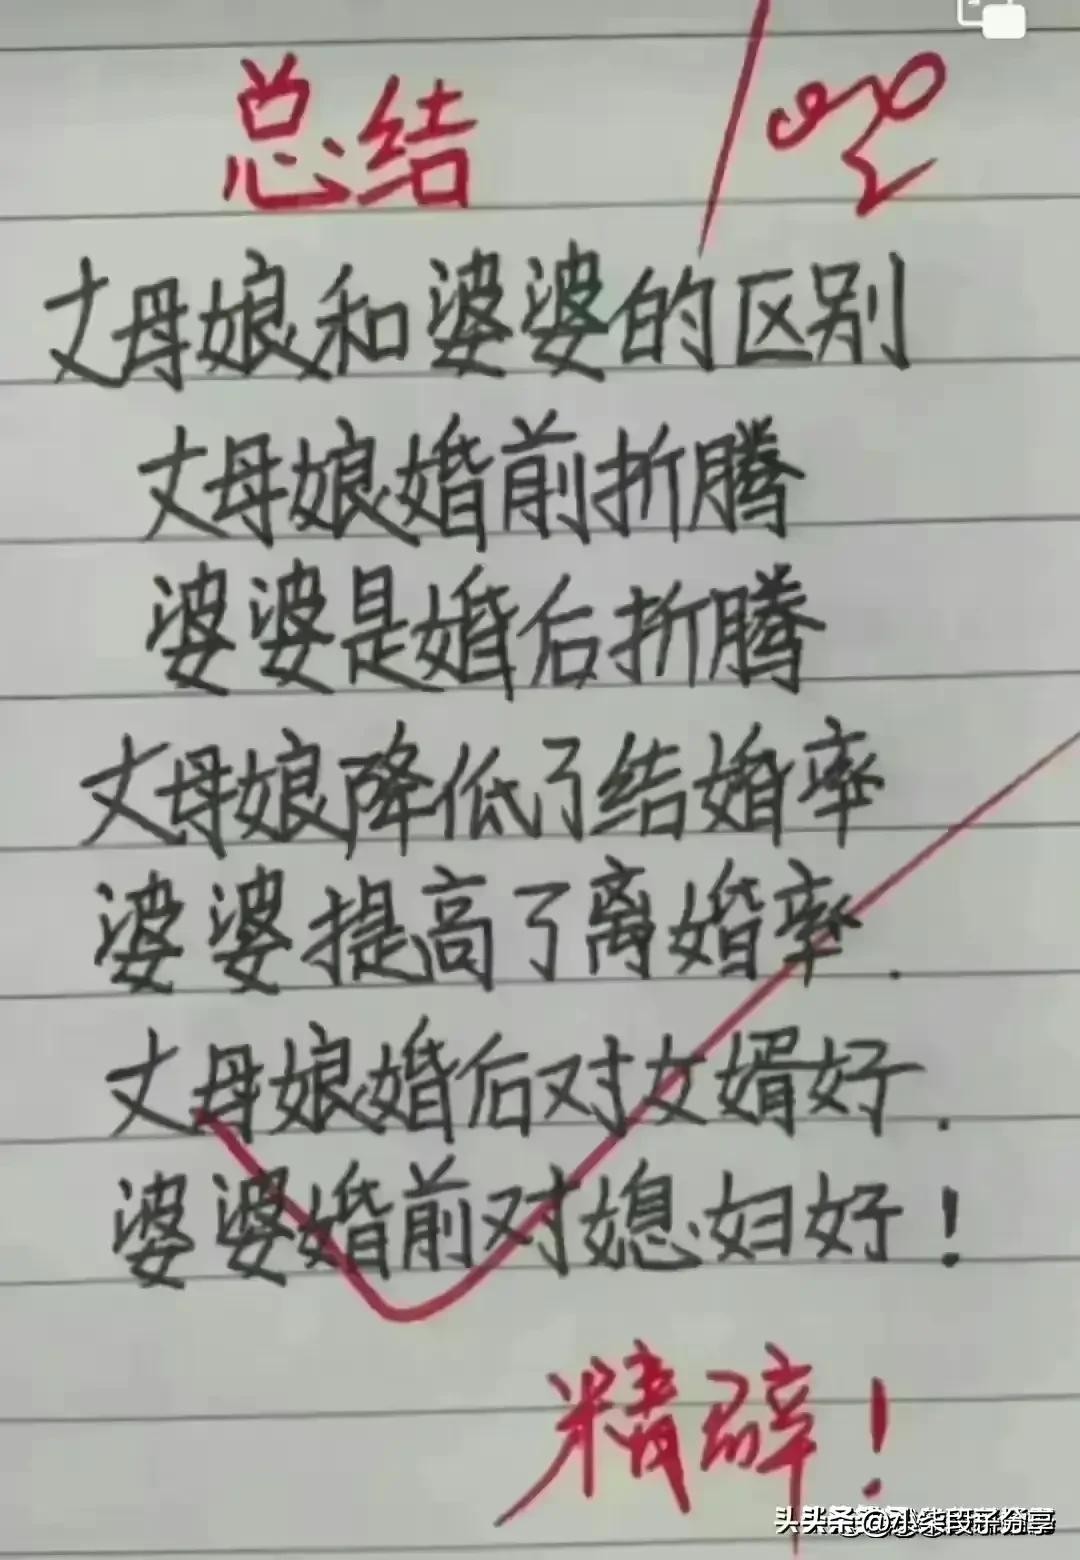 总结
丈母娘和婆婆的区别
丈母娘婚前折腾
婆婆是婚后折腾
丈母娘降低了结婚率
婆婆提高了离婚率.
丈母娘婚后对女婿好.
婆婆婚前对媳妇好!
精辟!
头条@小柴段子分享